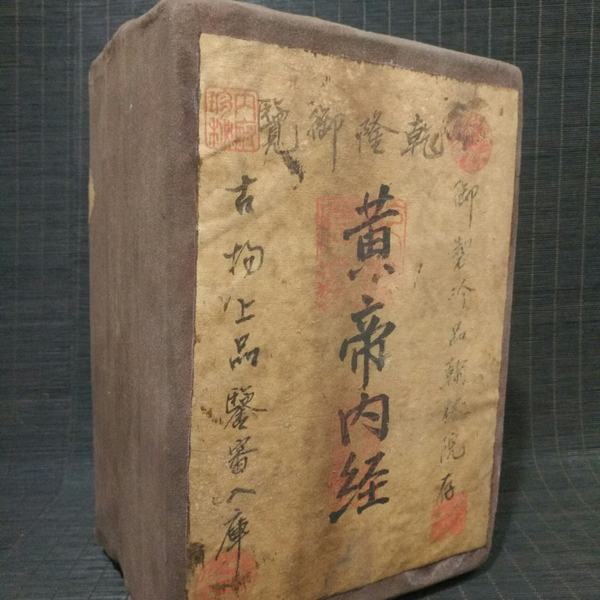 乾隆御覽
御製珍品翰林院存
黄帝内经
古物上品鑒審入庫